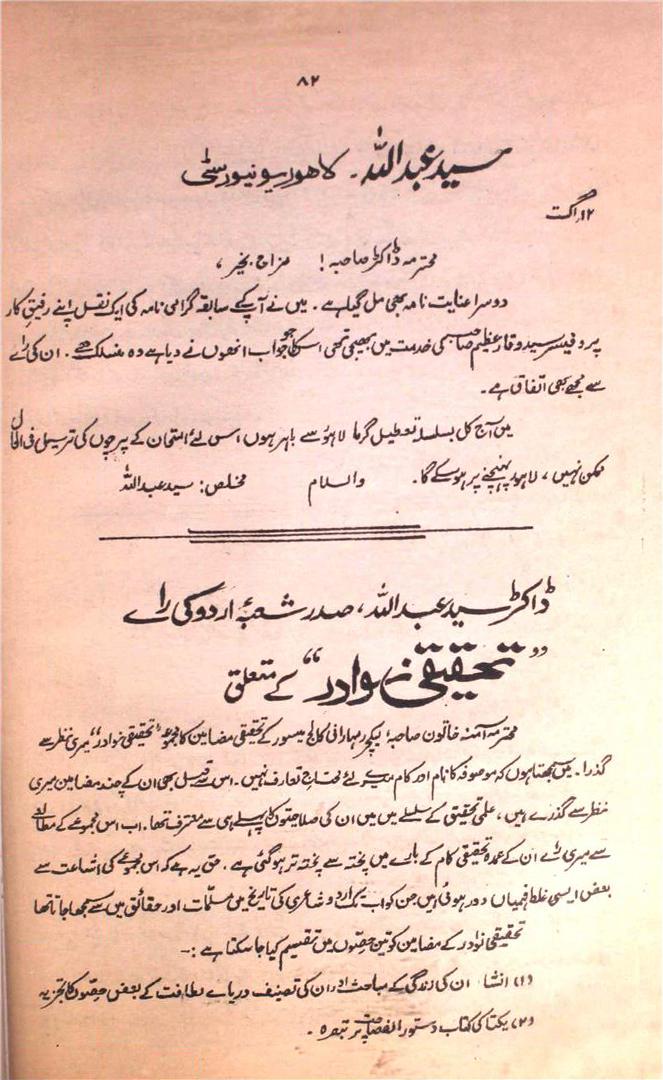 ۸۲
سید عبداللہ۔ لاھور یونیورسٹی
۱۲ اگست
محترمہ ڈاکٹر صاحبہ! مزاج بخیر،
دوسرا عنایت نامہ بھی مل گیا ہے۔ میں نے آپ کے سابقہ گرامی نامہ کی ایک نقل اپنے رفیقِ کار
پروفیسر سید وقار عظیم صاحب کی خدمت میں بھیجی تھی اس کا جو جواب انھوں نے دیا ہے وہ منسلک ہے۔ ان کی رائے
سے مجھے بھی اتفاق ہے۔
میں آج کل بسلسلہ تعطیل گرما لاہور سے باہر ہوں اس لئے امتحان کے پرچوں کی ترسیل فی الحال
ممکن نہیں، لاہور پہنچنے پر ہو سکے گا۔ والسلام مخلص: سید عبداللہ
ڈاکٹر سید عبداللہ، صدر شعبۂ اردو کی رائے
”تحقیقی نوادر“ کے متعلق
محترمہ آمنہ خاتون صاحبہ لیکچرر مہارانی کالج میسور کے تحقیقی مضامین کا مجموعہ ”تحقیقی نوادر“ میری نظر سے
گذرا۔ میں سمجھتا ہوں کہ موصوفہ کا نام اور کام میرے لئے محتاج تعارف نہیں۔ اس سے قبل بھی ان کے چند مضامین میری
نظر سے گذرے ہیں، علمی تحقیق کے سلسلے میں میں ان کی صلاحیتوں کا پہلے ہی سے معترف تھا۔ اب اس مجموعے کے مطالعے
سے میری رائے ان کے عمدہ تحقیقی کام کے بارے میں پختہ سے پختہ تر ہو گئی ہے۔ حق یہ ہے کہ اس مجموعے کی اشاعت سے
بعض ایسی غلط فہمیاں دور ہوئی ہیں جن کو اب تک اردو شاعری کی تاریخ میں مسلمات اور حقائق میں سے سمجھا جاتا تھا
تحقیقی نوادر کے مضامین کو تین حصوں میں تقسیم کیا جا سکتا ہے :۔
(۱) انشا ان کی زندگی کے مباحث اور ان کی تصنیف دریائے لطافت کے بعض حصوں کا تجزیہ
(۲) یکتا کی کتاب دستور الفصاحت پر تبصرہ۔